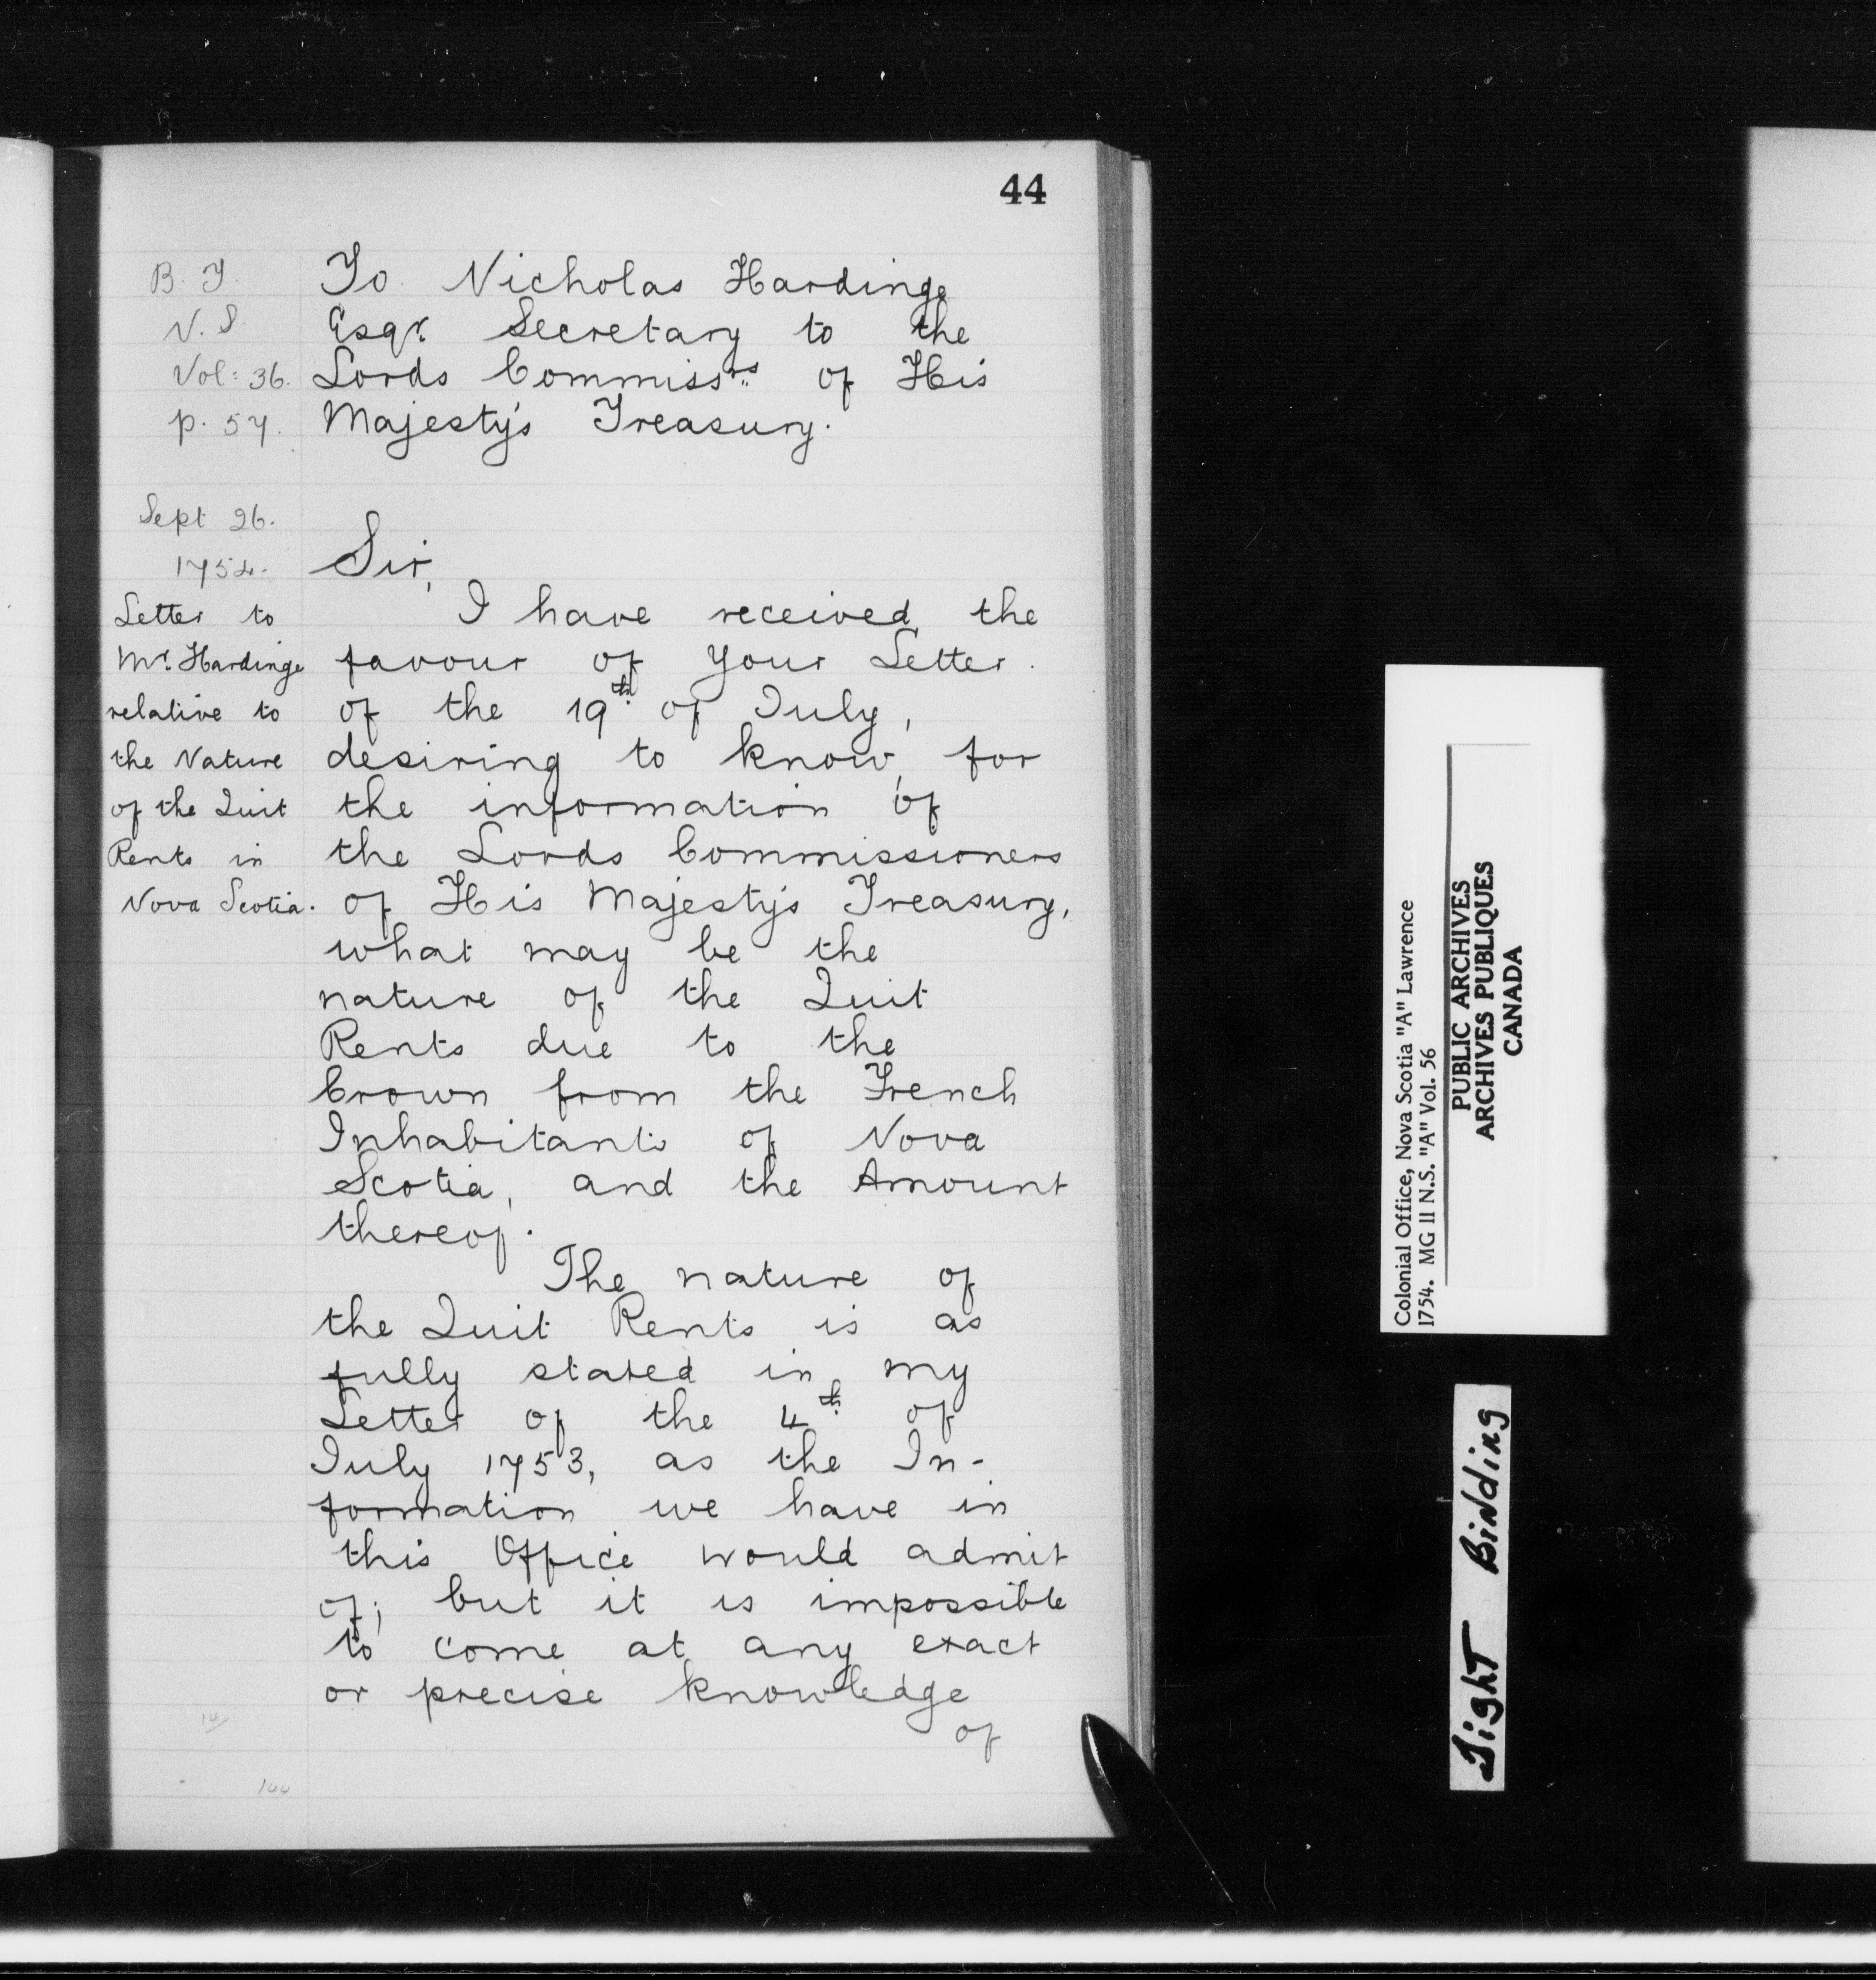 44
B. T.
N. S.
Vol: 36.
p. 57.
To Nicholas Hardinge
Esqr. Secretary to the
Lords Commissrs of His
Majesty's Treasury.
Sept 26.
1754.
Letter to
Mr. Hardinge
relative to
the Nature
of the Quit
Rents in
Nova Scotia.
Sir,
I have received the
favour of your Letter
of the 19th of July,
desiring to know, for
the information of
the Lords Commissioners
of His Majesty's Treasury,
what may be the
nature of the Quit
Rents due to the
Crown from the French
Inhabitants of Nova
Scotia, and the Amount
thereof.
The nature of
the Quit Rents is as
fully stated in my
Letter of the 4th of
July 1753, as the In-
formation we have in
this Office would admit
of; but it is impossible
to come at any exact
or precise knowledge
of
Colonial Office, Nova Scotia "A" Lawrence
1754. MG 11 N.S. "A" Vol. 56
PUBLIC ARCHIVES
ARCHIVES PUBLIQUES
CANADA
Tight Binding